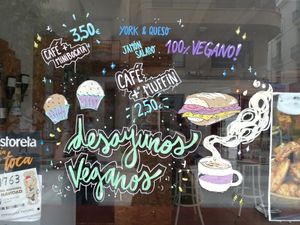 CAFÉ +
MINIBOCATA
3,50€
YORK & QUESO
JAMÓN SALADO
100% VEGANO!
CAFÉ
+ MUFFIN
2,50.-
desayunos
Veganos
storela
toca
1763
NAVIDAD